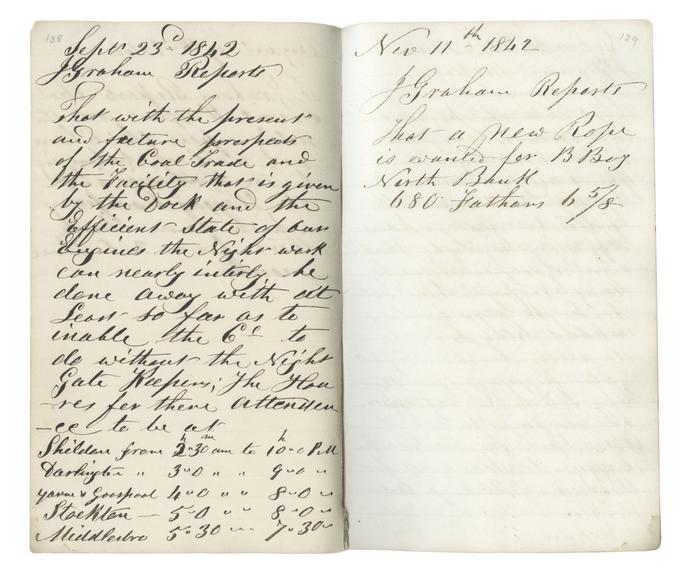 138
Sept 23d 1842
J Graham Reports
That with the present
and future prospects
of the Coal Trade and
the Facility that is given
by the Dock and the
Efficient State of our
Engines the Night work
can nearly interly be
done away with at
Least so far as to
inable the Co to
do without the Night
Gate Keepers; The Hou
-res for there attenden
-ce to be at
h m h
Shildon from 2"30 am to 10"0 PM
Darlington " 3"0 " " 9"0 "
Yarm & Goospool 4"0 " " 8"0 "
Stockton — 5"0 " " 8"0 "
Middlesbro 5"30 " " 7"30 "
139
Nov 11th 1842
J Graham Reports
That a new Rope
is wanted for B Boy
North Bank
680 Fathoms 6 5/8